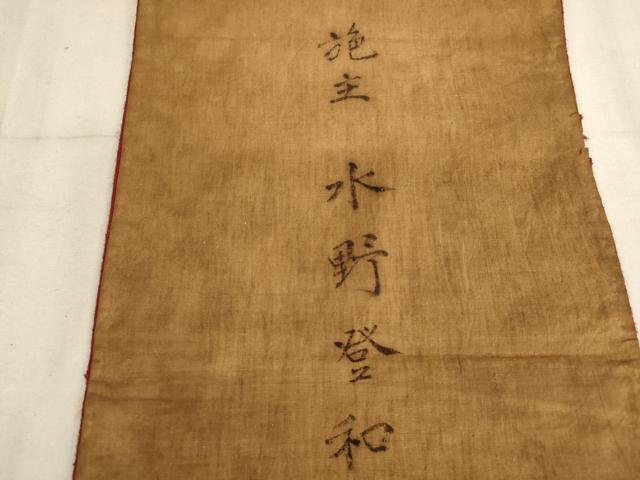 施主 水野登和